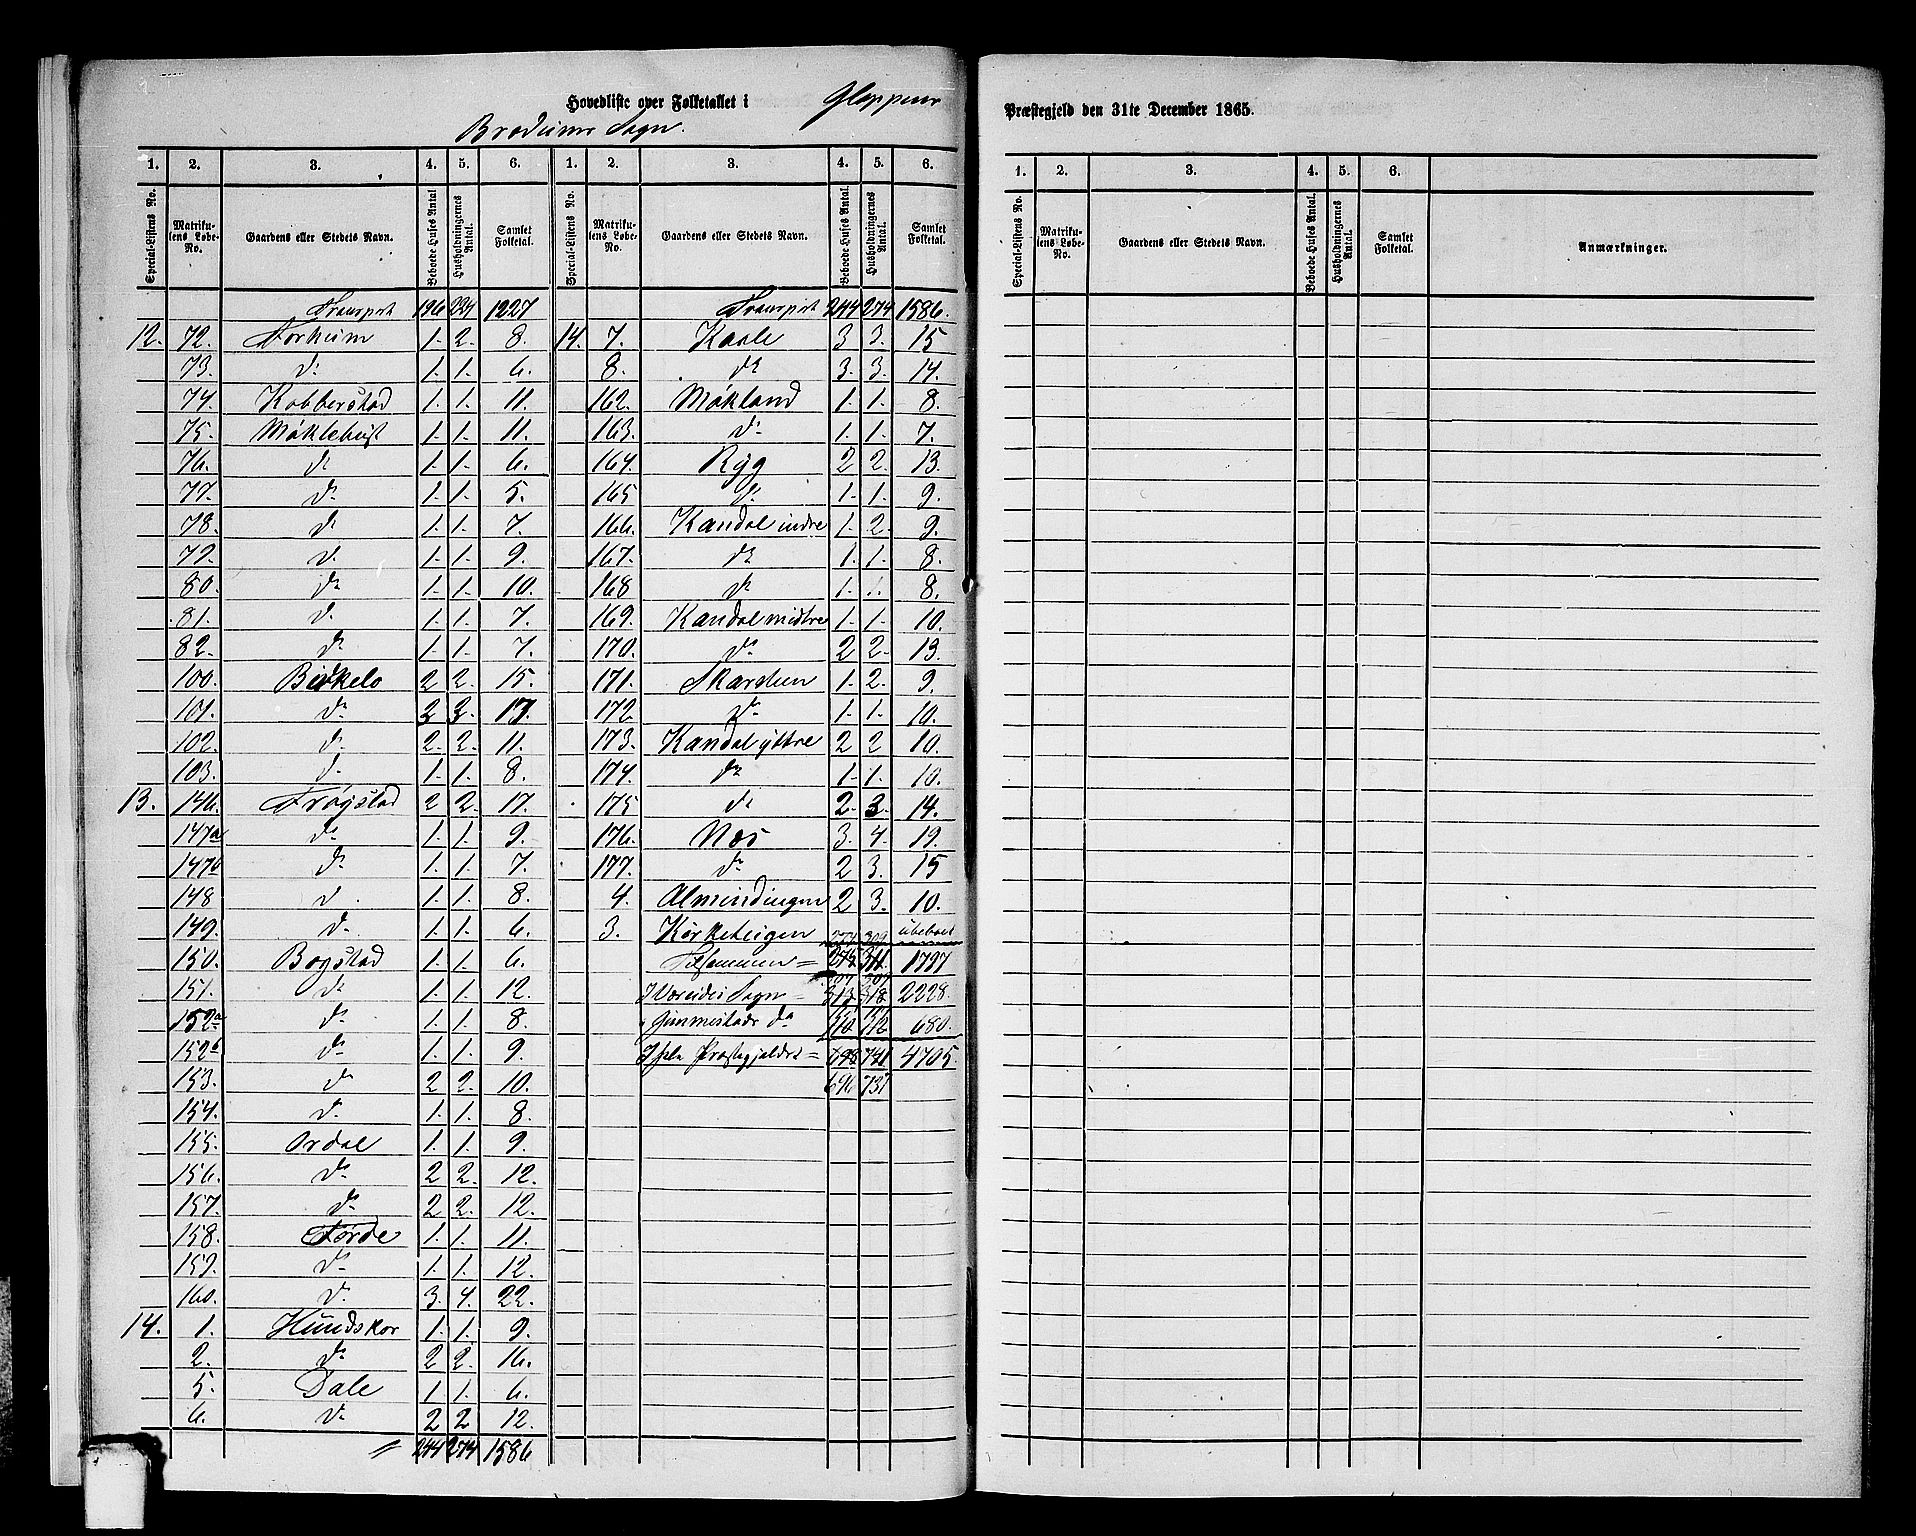 Hovedliste over Folketallet i Gloppens
Præstegjeld den 31te December 1865.
Bredeims Sogn.
1. 2. 3. 4. 5. 6. 1. 2. 3. 4. 5. 6.
Special-Listens No. Matrikulens Løbe-No. Gaardens eller Stedets Navn. Beboede Huses Antal Husholdningernes Antal. Samlet Folketal. Special-Listens No. Matrikulens Løbe-No. Gaardens eller Stedets Navn. Beboede Huses Antal. Husholdningernes Antal. Samlet Folketal.
Transport 196 224 1227 Transport 244 274 1586.
12. 72. Forheim 1. 2. 8. 14. 7. Kaale 3 3. 15
73. do 1. 1. 6. 8. do 3. 3. 14.
74. Kobberstad 1. 1. 11. 162. Møkland 1. 1. 8.
75. Møklebust 1. 1. 11. 163. do 1. 1. 7.
76. do 1. 1. 6. 164. Ryg 2 2. 13.
77. do 1. 1. 5. 165 do 1. 1. 9.
78. do 1. 1. 7. 166. Kandal indre 1. 2. 9.
79. do 1. 1. 9. 167. do 1. 1. 8.
80. do 1. 1. 10. 168 do 1. 1. 8.
81. do 1. 1. 7. 169. Kandal midtre 1. 1. 10.
82. do 1. 1. 7. 170. do 2 2. 13.
100. Birkelo 2 2. 15. 171. Skarsten 1. 2. 9.
101. do 3 3. 17. 172. do 1. 1. 10.
102. do 2. 2. 11. 173. Kandal yttre 2 2 10.
103. do 1. 1. 8. 174. do 1. 1. 10.
13. 146. Frøystad 2 2. 17. 175 do 2. 3. 14.
147a do 1. 1. 9. 176. Næs 3. 4. 19.
147b do 1. 1. 7. 177. do 2 3. 15
148 do 1. 1. 8. 4. Almindingen 2 3. 10.
149. do 1. 1. 6. 3. Kirketeigen ubeboet
274 309
150. Bogstad 1. 1. 6. Tilsammen = 275 311 1797
151. do 1. 1. 12. I Vereides Sogn = 313 318 2228.
307 307
152a do 1. 1. 8. " Gimmestads do 110 112 680.
152b do 1. 1. 9. I hele Præstegjeldet = 698 741 4705.
153. do 2 2. 10. 696 737
154. do 1. 1. 8.
155. Ordal 1. 1. 9.
156. do 2 2. 12.
157. do 2 2. 12.
158. Førde 1. 1. 11.
159. do 1. 1. 12.
160. do 3. 4. 22.
14. 1. Hundskor 1. 1. 9.
2. do 2 2. 16.
5. Dale 1. 1. 6.
6. do 2 2 12.
= 244 274 1586
1. 2. 3. 4. 5. 6.
Special-Listens No. Matrikulens Løbe-No. Gaardens eller Stedets Navn. Beboede Huses Antal. Husholdningernes Antal. Samlet Folketal. Anmærkninger.